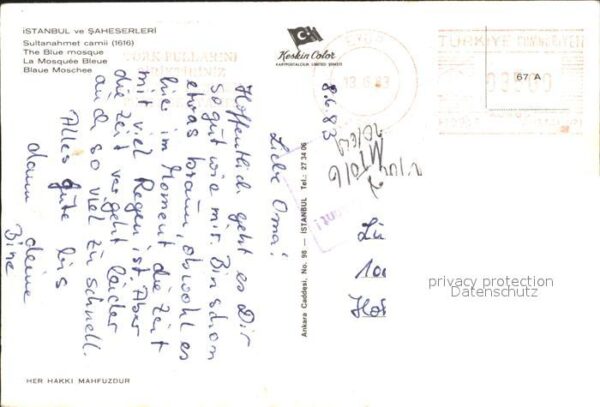 İSTANBUL ve ŞAHESERLERİ
Sultanahmet camii (1616)
The Blue mosque
La Mosquée Bleue
Blaue Moschee
Keskin Color
KARTPOSTALCILIK LIMITED ŞİRKETİ
TÜRK PULLARINI
TÜRKİYE CUMHURİYETİ
67 A
8.6.83
Liebe Oma!
Hoffentlich geht es Dir
so gut wie mir. Bin schon
etwas braun, obwohl es
hier im Moment die Zeit
mit viel Regen ist. Aber
die Zeit vergeht leider
auch so viel zu schnell.
Alles Gute bis
dann deine
Bine
Ankara Caddesi, No. 98 — İSTANBUL Tel.: 27 34 06
privacy protection
Datenschutz
HER HAKKI MAHFUZDUR